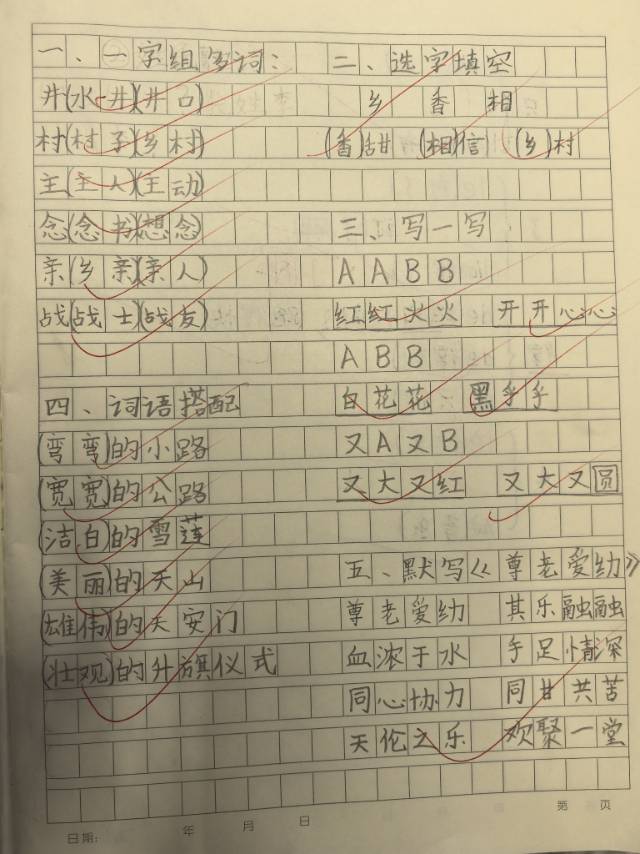 一、一字组多词：
井(水井)(井口)
村(村子)(乡村)
主(主人)(主动)
念(念书)(想念)
亲(乡亲)(亲人)
战(战士)(战友)
四、词语搭配
(弯弯)的小路
(宽宽)的公路
(洁白)的雪莲
(美丽)的天山
(雄伟)的天安门
(壮观)的升旗仪式
二、选字填空
乡 香 相
(香)甜 (相)信 (乡)村
三、写一写
AABB
红红火火 开开心心
ABB
白花花 黑乎乎
又A又B
又大又红 又大又圆
五、默写《尊老爱幼》
尊老爱幼 其乐融融
血浓于水 手足情深
同心协力 同甘共苦
天伦之乐 欢聚一堂
第 页
日期： 年 月 日